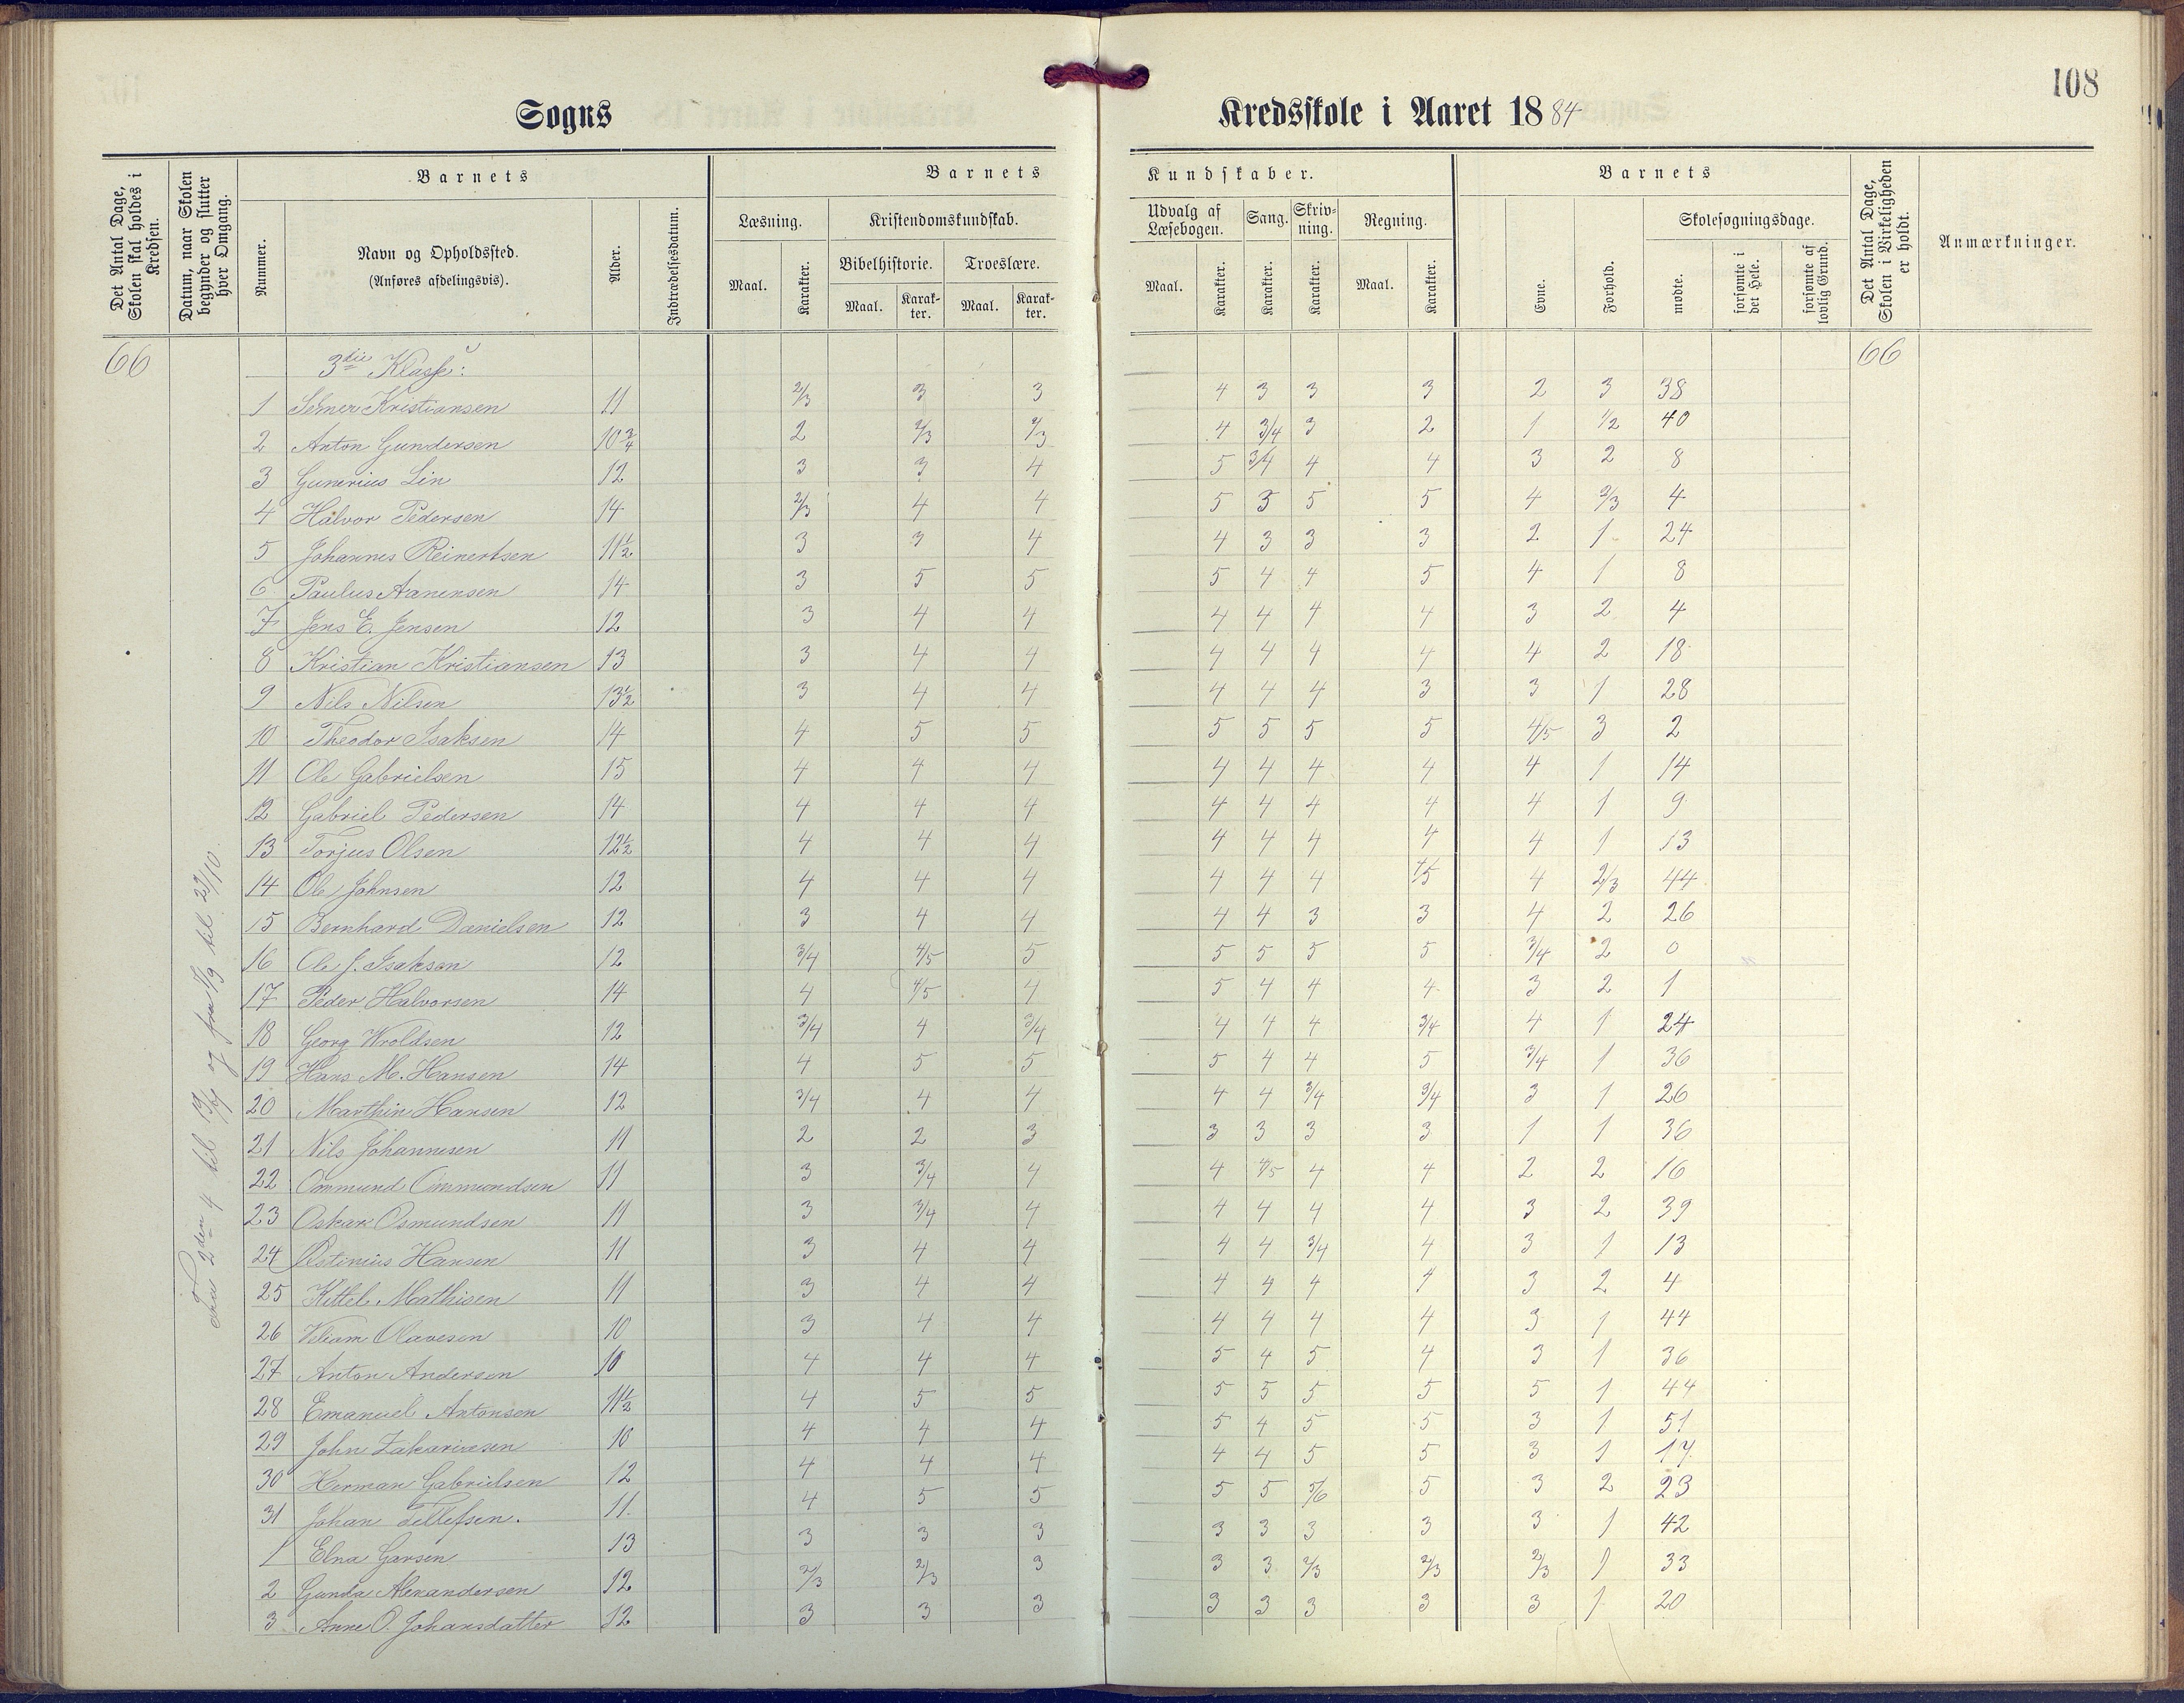 108
Sogns Kredsskole i Aaret 1884
Det Antal Dage, Skolen skal holdes i Kredsen.
Datum, naar Skolen begynder og slutter hver Omgang.
Barnets
Nummer.
Navn og Opholdssted.
(Anføres afdelingsvis).
Alder.
Indtrædelsesdatum.
Barnets Kundskaber.
Læsning.
Maal. Karakter.
Kristendomskundskab.
Bibelhistorie. Troeslære.
Maal. Karakter. Maal. Karakter.
Udvalg af Læsebogen.
Maal. Karakter.
Sang.
Karakter.
Skrivning.
Karakter.
Regning.
Maal. Karakter.
Barnets
Evne. Forhold.
Skolesøgningsdage.
mødte. forsømte i det Hele. forsømte af lovlig Grund.
Det Antal Dage, Skolen i Virkeligheden er holdt.
Anmærkninger.
66 3die Klasse: 66
1 Kristiansen 11 2/3 3 3 4 3 3 3 2 3 38
2 Anton Gundersen 10 3/4 2 2/3 2/3 4 3/4 3 2 1 1/2 40
3 Gunerius Lin 12 3 3 4 5 3/4 4 4 3 2 8
4 Halvor Pedersen 14 2/3 4 4 5 3 5 5 4 2/3 4
5 Johannes Reinertsen 11 1/2 3 3 4 4 3 3 3 2 1 24
6 Paulus Aanensen 14 3 5 5 5 4 4 5 4 1 8
7 Jens E. Jensen 12 3 4 4 4 4 4 4 3 2 4
8 Kristian Kristiansen 13 3 4 4 4 4 4 4 4 2 18
9 Nils Nilsen 13 1/2 3 4 4 4 4 4 3 3 1 28
10 Theodor Isaksen 14 4 5 5 5 5 5 5 4/5 3 2
11 Ole Gabrielsen 15 4 4 4 4 4 4 4 4 1 14
12 Gabriel Pedersen 14 4 4 4 4 4 4 4 4 1 9
13 Torjus Olsen 12 1/2 4 4 4 4 4 4 4 4 1 13
14 Ole Johnsen 12 4 4 4 4 4 4 4/5 4 2/3 44
15 Bernhard Danielsen 12 3 4 4 4 4 3 3 4 2 26
16 Ole J. Isaksen 12 3/4 4/5 5 5 5 5 5 3/4 2 0
17 Peder Halvorsen 14 4 4/5 4 5 4 4 4 3 2 1
18 Georg Wroldsen 12 3/4 4 3/4 4 4 4 3/4 4 1 24
19 Hans M. Hansen 14 4 5 5 5 4 4 5 3/4 1 36
20 Marthin Hansen 12 3/4 4 4 4 4 3/4 3/4 3 1 26
21 Nils Johannesen 11 2 2 3 3 3 3 3 1 1 36
22 Ommund Ommundsen 11 3 3/4 4 4 4/5 4 4 2 2 16
23 Oskar Osmundsen 11 3 3/4 4 4 4 4 4 3 2 39
24 Hansen 11 3 4 4 4 4 3/4 4 3 1 13
25 Kittel Mathisen 11 3 4 4 4 4 4 4 3 2 4
26 Viliam Olavesen 10 3 4 4 4 4 4 4 3 1 44
27 Anton Andersen 10 4 4 4 5 4 5 4 3 1 36
28 Emanuel Antonsen 11 1/2 4 5 5 5 5 5 5 5 1 44
29 John Zakariasen 10 4 4 4 5 4 5 5 3 1 51
30 Herman Gabrielsen 12 4 4 4 4 4 5 5 3 1 17
31 Johan Tellefsen. 11 4 5 5 5 5 5/6 5 3 2 23
1 Elna Garsen 13 3 3 3 3 3 3 3 3 1 42
2 Gunda Alexandersen 12 2/3 2/3 3 3 3 2/3 2/3 2/3 1 33
3 Anne O. Johansdatter 12 3 3 3 3 3 3 3 3 1 20
Fra 2den 4 til og fra til 23/10.